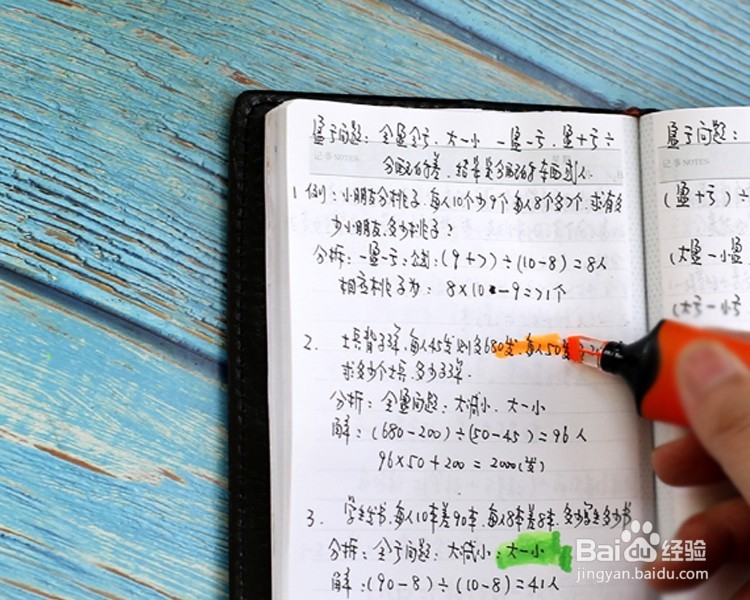 盈亏问题:全盈全亏.大-小 一盈一亏.盈+亏÷
记事NOTES
分配的差.结果是分配的东西到人.
1 例:小朋友分桃子.每人10个少9个每人8个多7个.求有多
少小朋友.多少桃子?
分析:一盈一亏:公式:(9+7)÷(10-8)=8人
相应桃子为:8×10-9=71个
2. 士兵背子弹.每人45发则多680发.每人50发
求多少个士兵.多少子弹.
分析:全盈问题:大减小.大-小
解:(680-200)÷(50-45)=96人
96×50+200=2000(发)
3. 学生分书.每人10本差90本.每人8本差8本.多少学生多少书
分析:全亏问题:大减小:大-小
解:(90-8)÷(10-8)=41人
盈亏问题:
记事NOTES
(盈+亏)÷
(大盈-小盈
(大亏-小亏
Baidu经验
jingyan.baidu.com